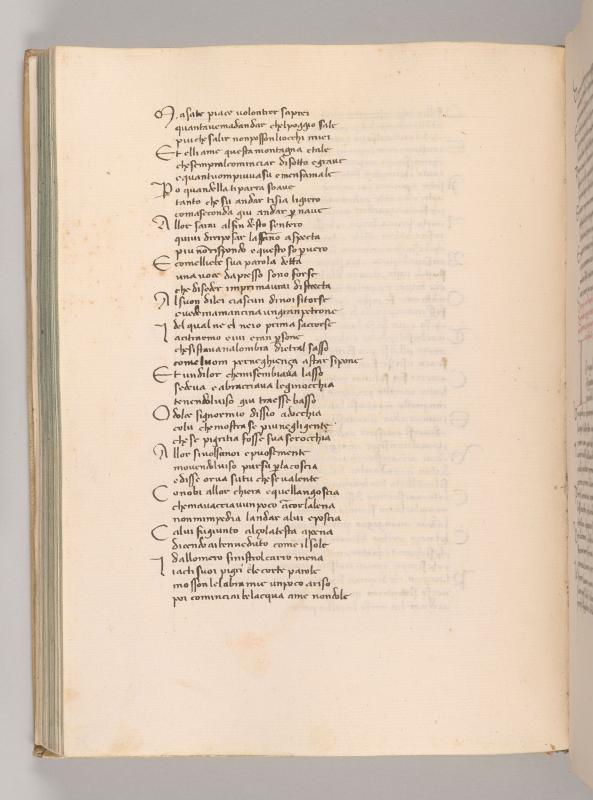 M a sate piace uolontier saprei
quantauemadandar chelpoggio sale
piu chesalir nonpossonliocchi miei
E t elli ame questa montagna e tale
che sempralcominciar disotto e graue
e quantuom piuuasu e mensamale
P o quandella tiparra soaue
tanto che su andar tisia ligiero
comaseconda giu andar p naue
A llor sarai alfin desto sentero
quiui diriposar laffano aspecta
piu no rispondo e questo so puero
E comellebe sua parola detta
una uoce dapresso sono forse
che diseder imprimaurai distrecta
A lsuon dilei ciascun dinoi sitorse
e uedemamancina ungran petrone
del qual ne el neio prima saccorse
I acitraemo e iui eran psone
chesistauanalombra dietral sasso
comeluom per neghienza astar sipone
E t undilor chemisembiaua lasso
sedeua e abracciaua leginocchia
tenendoluiso giu traesse basso
O dolce signormio dissio adocchia
colui chemostrase piunegligente
che se pigritia fosse sua serocchia
A llor siuolsanoi epuosemente
mouendoluiso pursu placoscia
e disse or ua su tu chese ualente
C onobi allor chiera e quellangoscia
chemauacciaua unpoco ancorlalena
nonmimpedia landar alui eposcia
C alui fugiunto alzolatesta apena
dicendo aibenueduto come ilsole
dallomero sinistrolcarro mena
I iacti suoi pigri e le corte parole
mosson le labra mie unpoco ariso
poi cominciai belacqua ame non dole